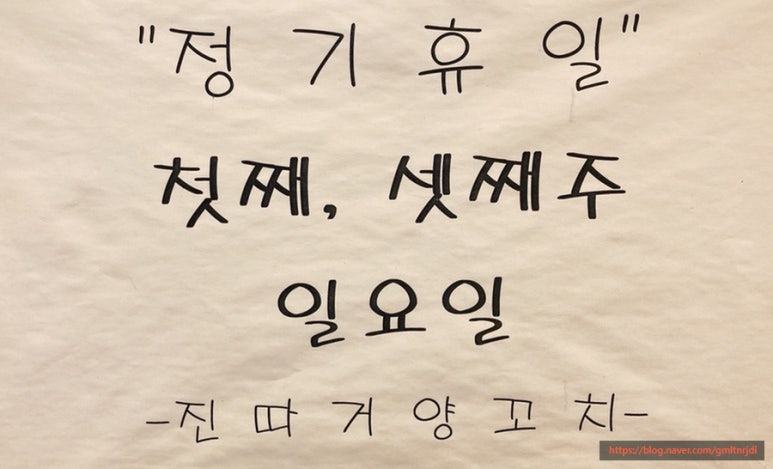 "정기휴일"
첫째, 셋째주
일요일
-진따거양꼬치-
https://blog.naver.com/gmltnrjdi